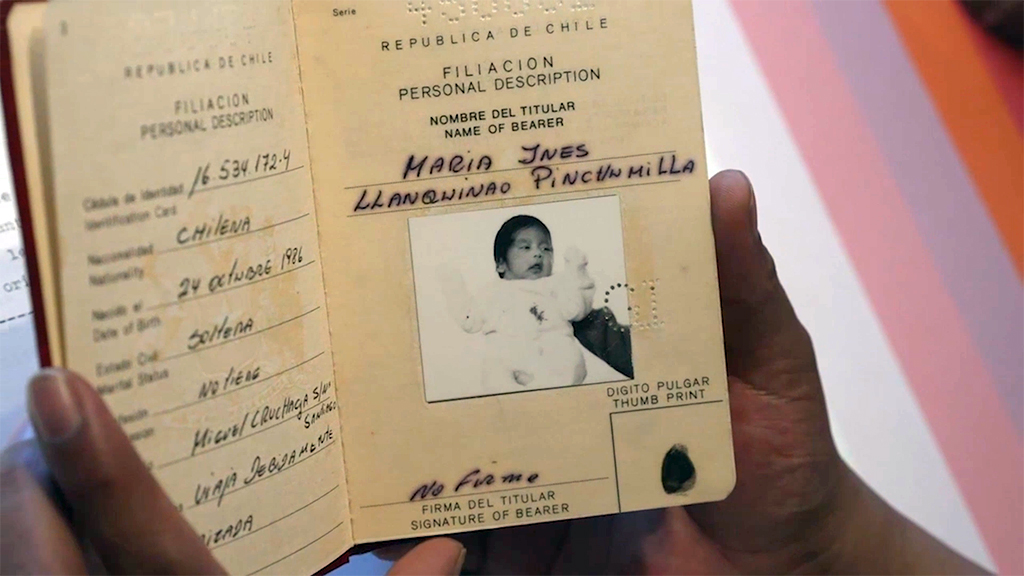 REPUBLICA DE CHILE
FILIACION
PERSONAL DESCRIPTION
Cédula de Identidad 16.534.172-4
Identification Card
Nacionalidad CHILENA
Nationality
Nacido el 24 OCTUBRE 1986
Date of Birth
Estado Civil SOLTERA
Marital Status
NO TIENE
MIGUEL CRUCHAGA S/N
SANTIAGO
VIAJA DEBIDAMENTE
Serie
REPUBLICA DE CHILE
FILIACION
PERSONAL DESCRIPTION
NOMBRE DEL TITULAR
NAME OF BEARER
MARIA INES
LLANQUINAO PINCHUMILLA
DIGITO PULGAR
THUMB PRINT
NO FIRMA
FIRMA DEL TITULAR
SIGNATURE OF BEARER